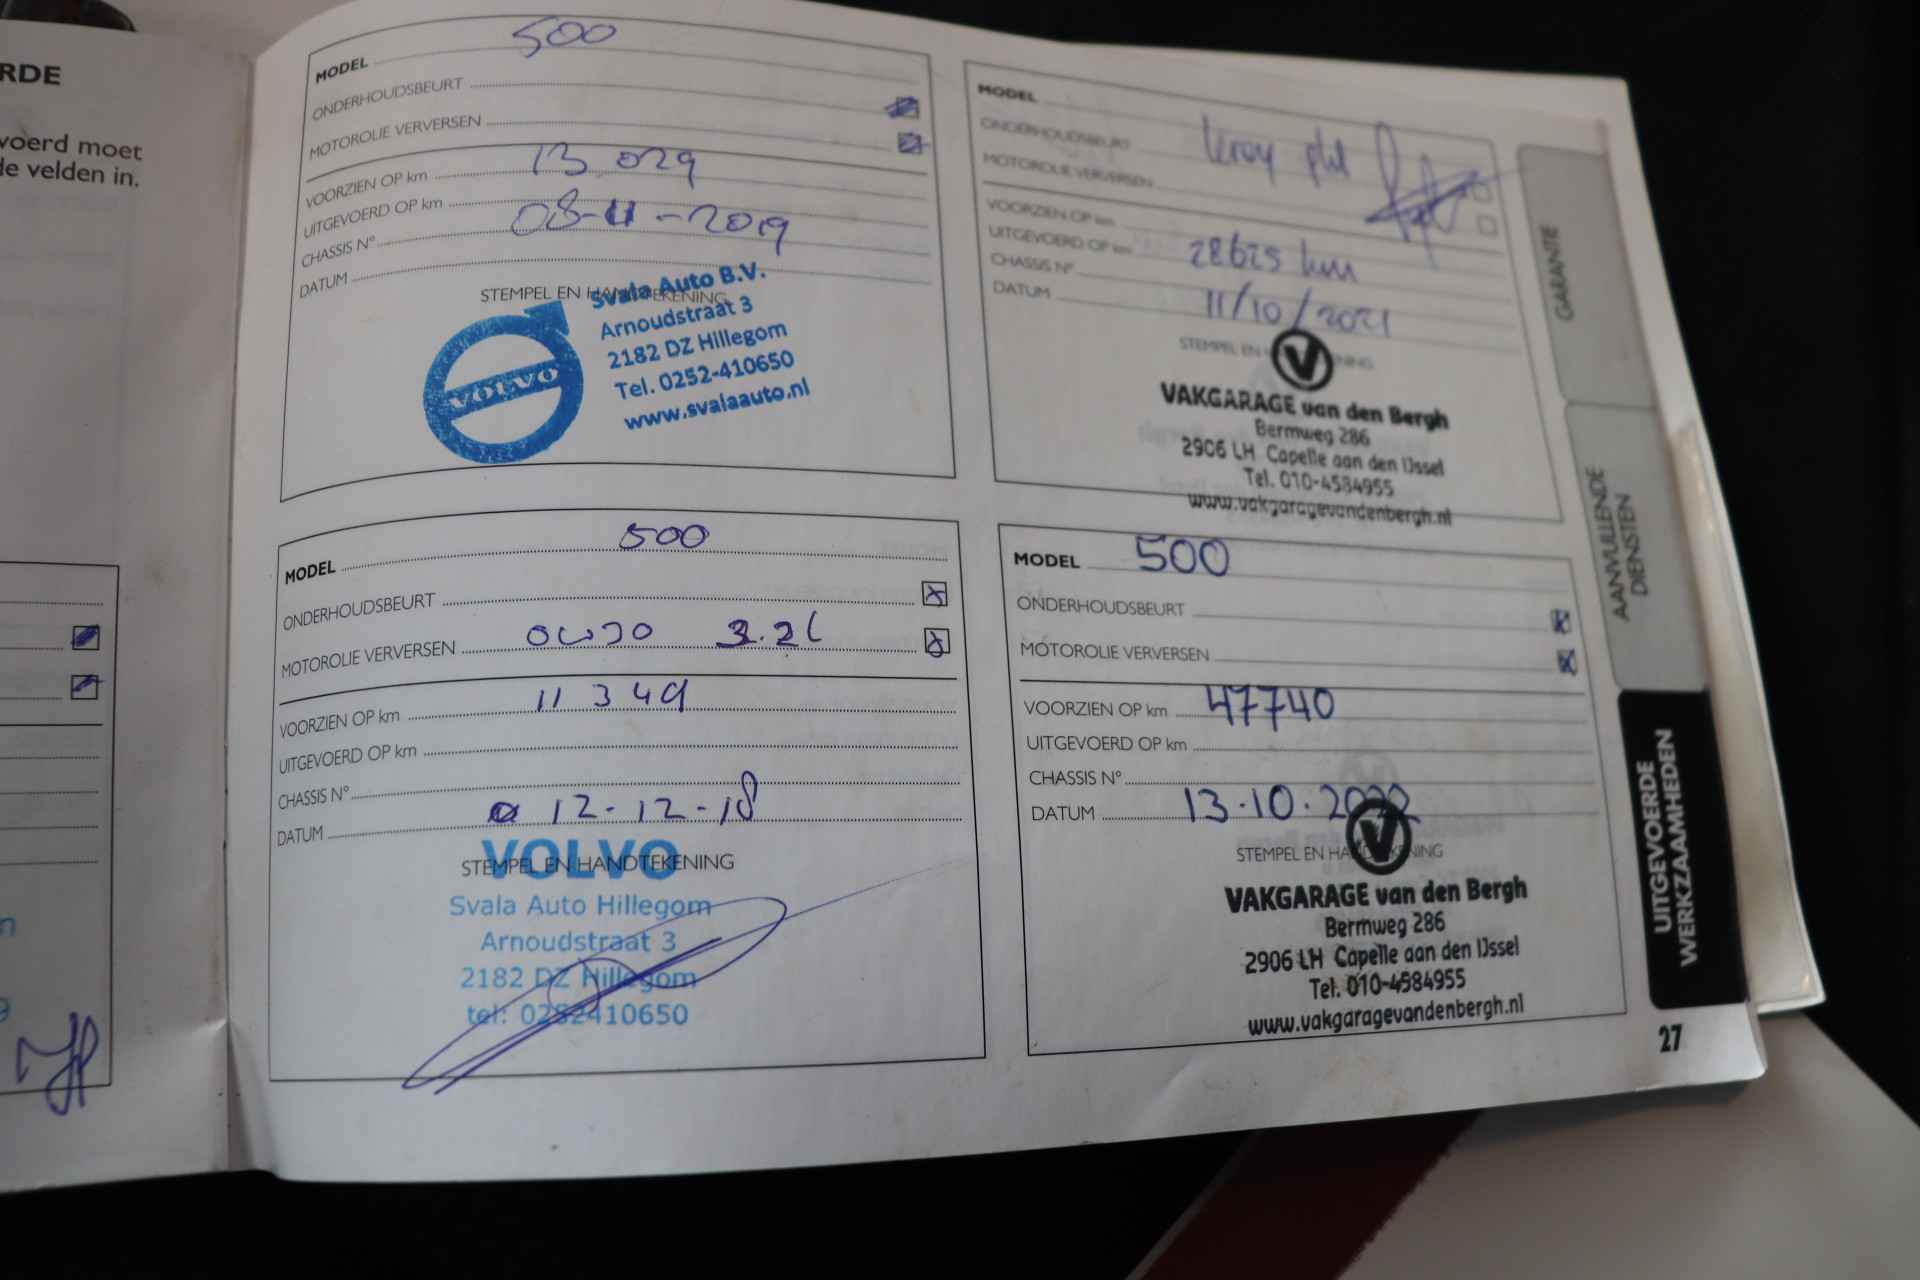 RDE
voerd moet
de velden in.
MODEL 500
ONDERHOUDSBEURT
MOTOROLIE VERVERSEN
VOORZIEN OP km 13 029
UITGEVOERD OP km
CHASSIS N° 08-11-2019
DATUM
STEMPEL EN HANDTEKENING
Svala Auto B.V.
Arnoudstraat 3
2182 DZ Hillegom
Tel. 0252-410650
www.svalaauto.nl
VOLVO
MODEL 500
ONDERHOUDSBEURT
MOTOROLIE VERVERSEN 0W30 3.2L
VOORZIEN OP km 11 349
UITGEVOERD OP km
CHASSIS N°
DATUM 12-12-18
VOLVO
STEMPEL EN HANDTEKENING
Svala Auto Hillegom
Arnoudstraat 3
2182 DZ Hillegom
tel: 0252410650
MODEL
ONDERHOUDSBEURT
MOTOROLIE VERVERSEN
VOORZIEN OP km
UITGEVOERD OP km 28625 km
CHASSIS N°
DATUM 11/10/2021
STEMPEL EN HANDTEKENING
V
VAKGARAGE van den Bergh
Bermweg 286
2906 LH Capelle aan den IJssel
Tel. 010-4584955
www.vakgaragevandenbergh.nl
MODEL 500
ONDERHOUDSBEURT
MOTOROLIE VERVERSEN
VOORZIEN OP km 47740
UITGEVOERD OP km
CHASSIS N°
DATUM 13.10.2022
STEMPEL EN HANDTEKENING
V
VAKGARAGE van den Bergh
Bermweg 286
2906 LH Capelle aan den IJssel
Tel. 010-4584955
www.vakgaragevandenbergh.nl
GARANTIE
AANVULLENDE
DIENSTEN
UITGEVOERDE
WERKZAAMHEDEN
27